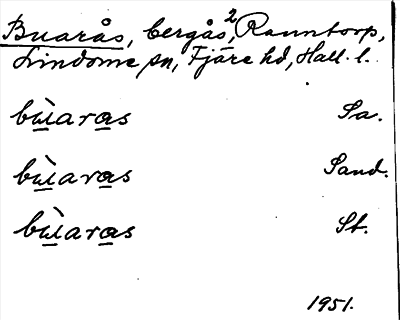 Buarås, bergås², Ranntorp,
Lindome sn, Fjäre hd, Hall. l.
bùaras Sa.
bùaras Sand.
bùaras St.
1951.